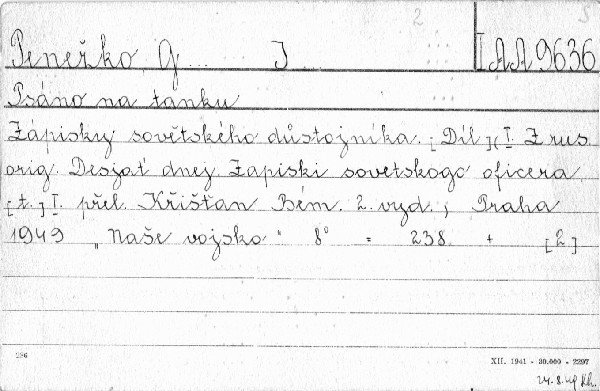 2 S
Peněžko G... J IAA9636
Psáno na tanku
Zápisky sovětského důstojníka. [Díl] (I. Z rus.
orig. Desjať dnej. Zapiski sovetskogo oficera
[t.] I. přel. Křišťan Bém. 2. vyd., Praha
1949 "Naše vojsko" 8° = 238 + [2]
286 XII. 1941 - 30.000 - 2297
24.8.49